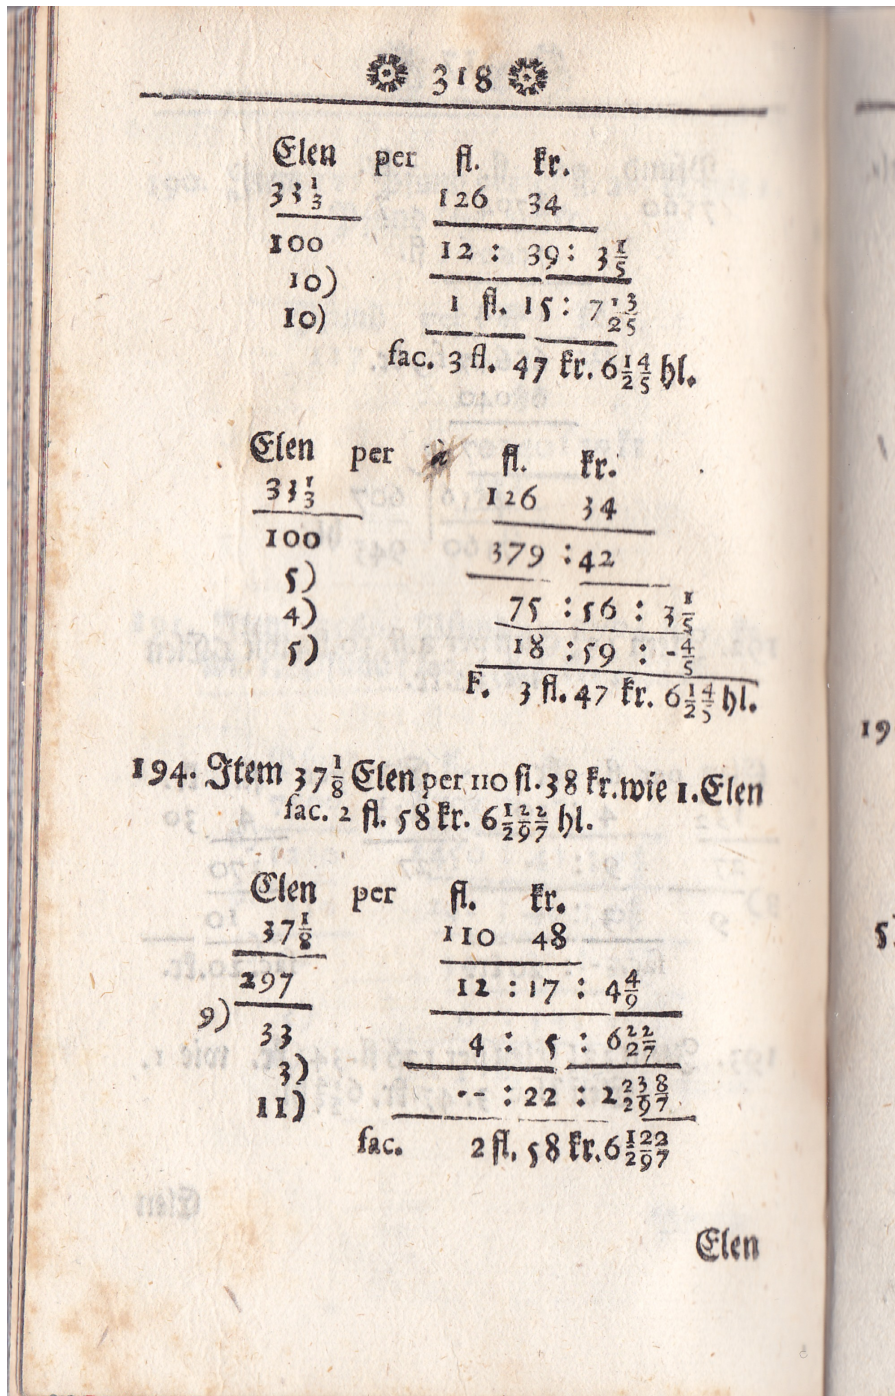 318
Elen per fl. kr.
33 1/3 126 34
100 12 : 39 : 3 1/5
10) 1 fl. 15 : 7 13/25
10)
fac. 3 fl. 47 kr. 6 1/2 4/5 hl.
Elen per fl. kr.
33 1/3 126 34
100 379 : 42
5)
4) 75 : 56 : 3 1/5
5) 18 : 59 : - 4/5
F. 3 fl. 47 kr. 6 1/2 4/5 hl.
194. Item 37 1/8 Elen per 110 fl. 38 kr. wie 1. Elen
fac. 2 fl. 58 kr. 6 1/2 22/97 hl.
Elen per fl. kr.
37 1/8 110 48
297 12 : 17 : 4 4/9
9)
33 4 : 5 : 6 22/27
3)
11) -- : 22 : 2 238/297
fac. 2 fl. 58 kr. 6 122/297
Elen
19
5